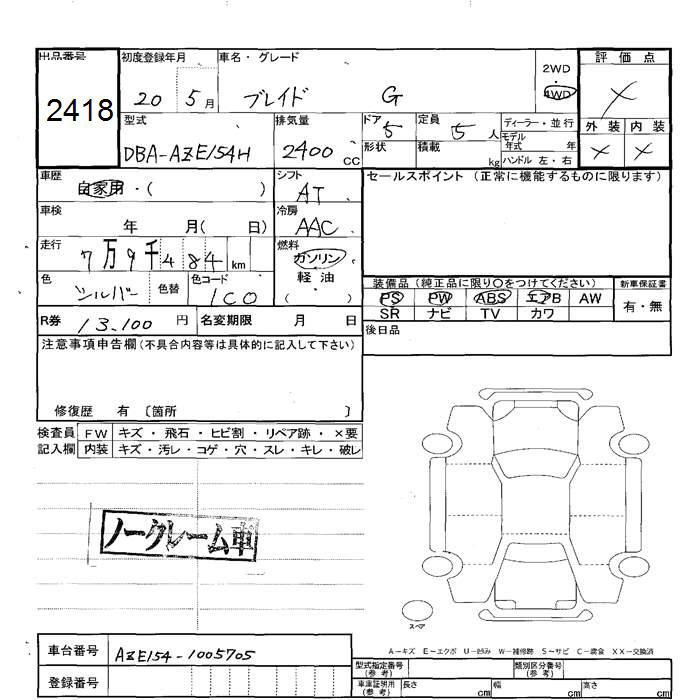 出品番号 初度登録年月 車名・グレード 2WD 評価点
2418 20 5月 ブレイド G ・ 4WD ×
型式 排気量 ドア 5 定員 5人 ディーラー・並行 外装 内装
DBA-AZE154H 2400cc 形状 積載 kg モデル年式 年 × ×
ハンドル 左・右
車歴 自家用・( ) シフト AT セールスポイント (正常に機能するものに限ります)
車検 年 月( 日) 冷房 AAC
走行 7万9千484km 燃料 ガソリン・軽油・( )
色 シルバー 色替 色コード 1C0 装備品 (純正品に限り○をつけてください) 新車保証書
PS PW ABS エアB AW 有・無
R券 13,100円 名変期限 月 日 SR ナビ TV カワ
注意事項申告欄 (不具合内容等は具体的に記入して下さい) 後日品
修復歴 有 〔箇所 〕
検査員 FW キズ・飛石・ヒビ割・リペア跡・×要
記入欄 内装 キズ・汚レ・コゲ・穴・スレ・キレ・破レ
ノークレーム車
スペア
A―キズ E―エクボ U―凹み W―補修跡 S―サビ C―腐食 XX―交換済
車台番号 AZE154-1005705 型式指定番号(参考) 類別区分番号(参考)
登録番号 車庫証明用(参考) 長さ cm 幅 cm 高さ cm